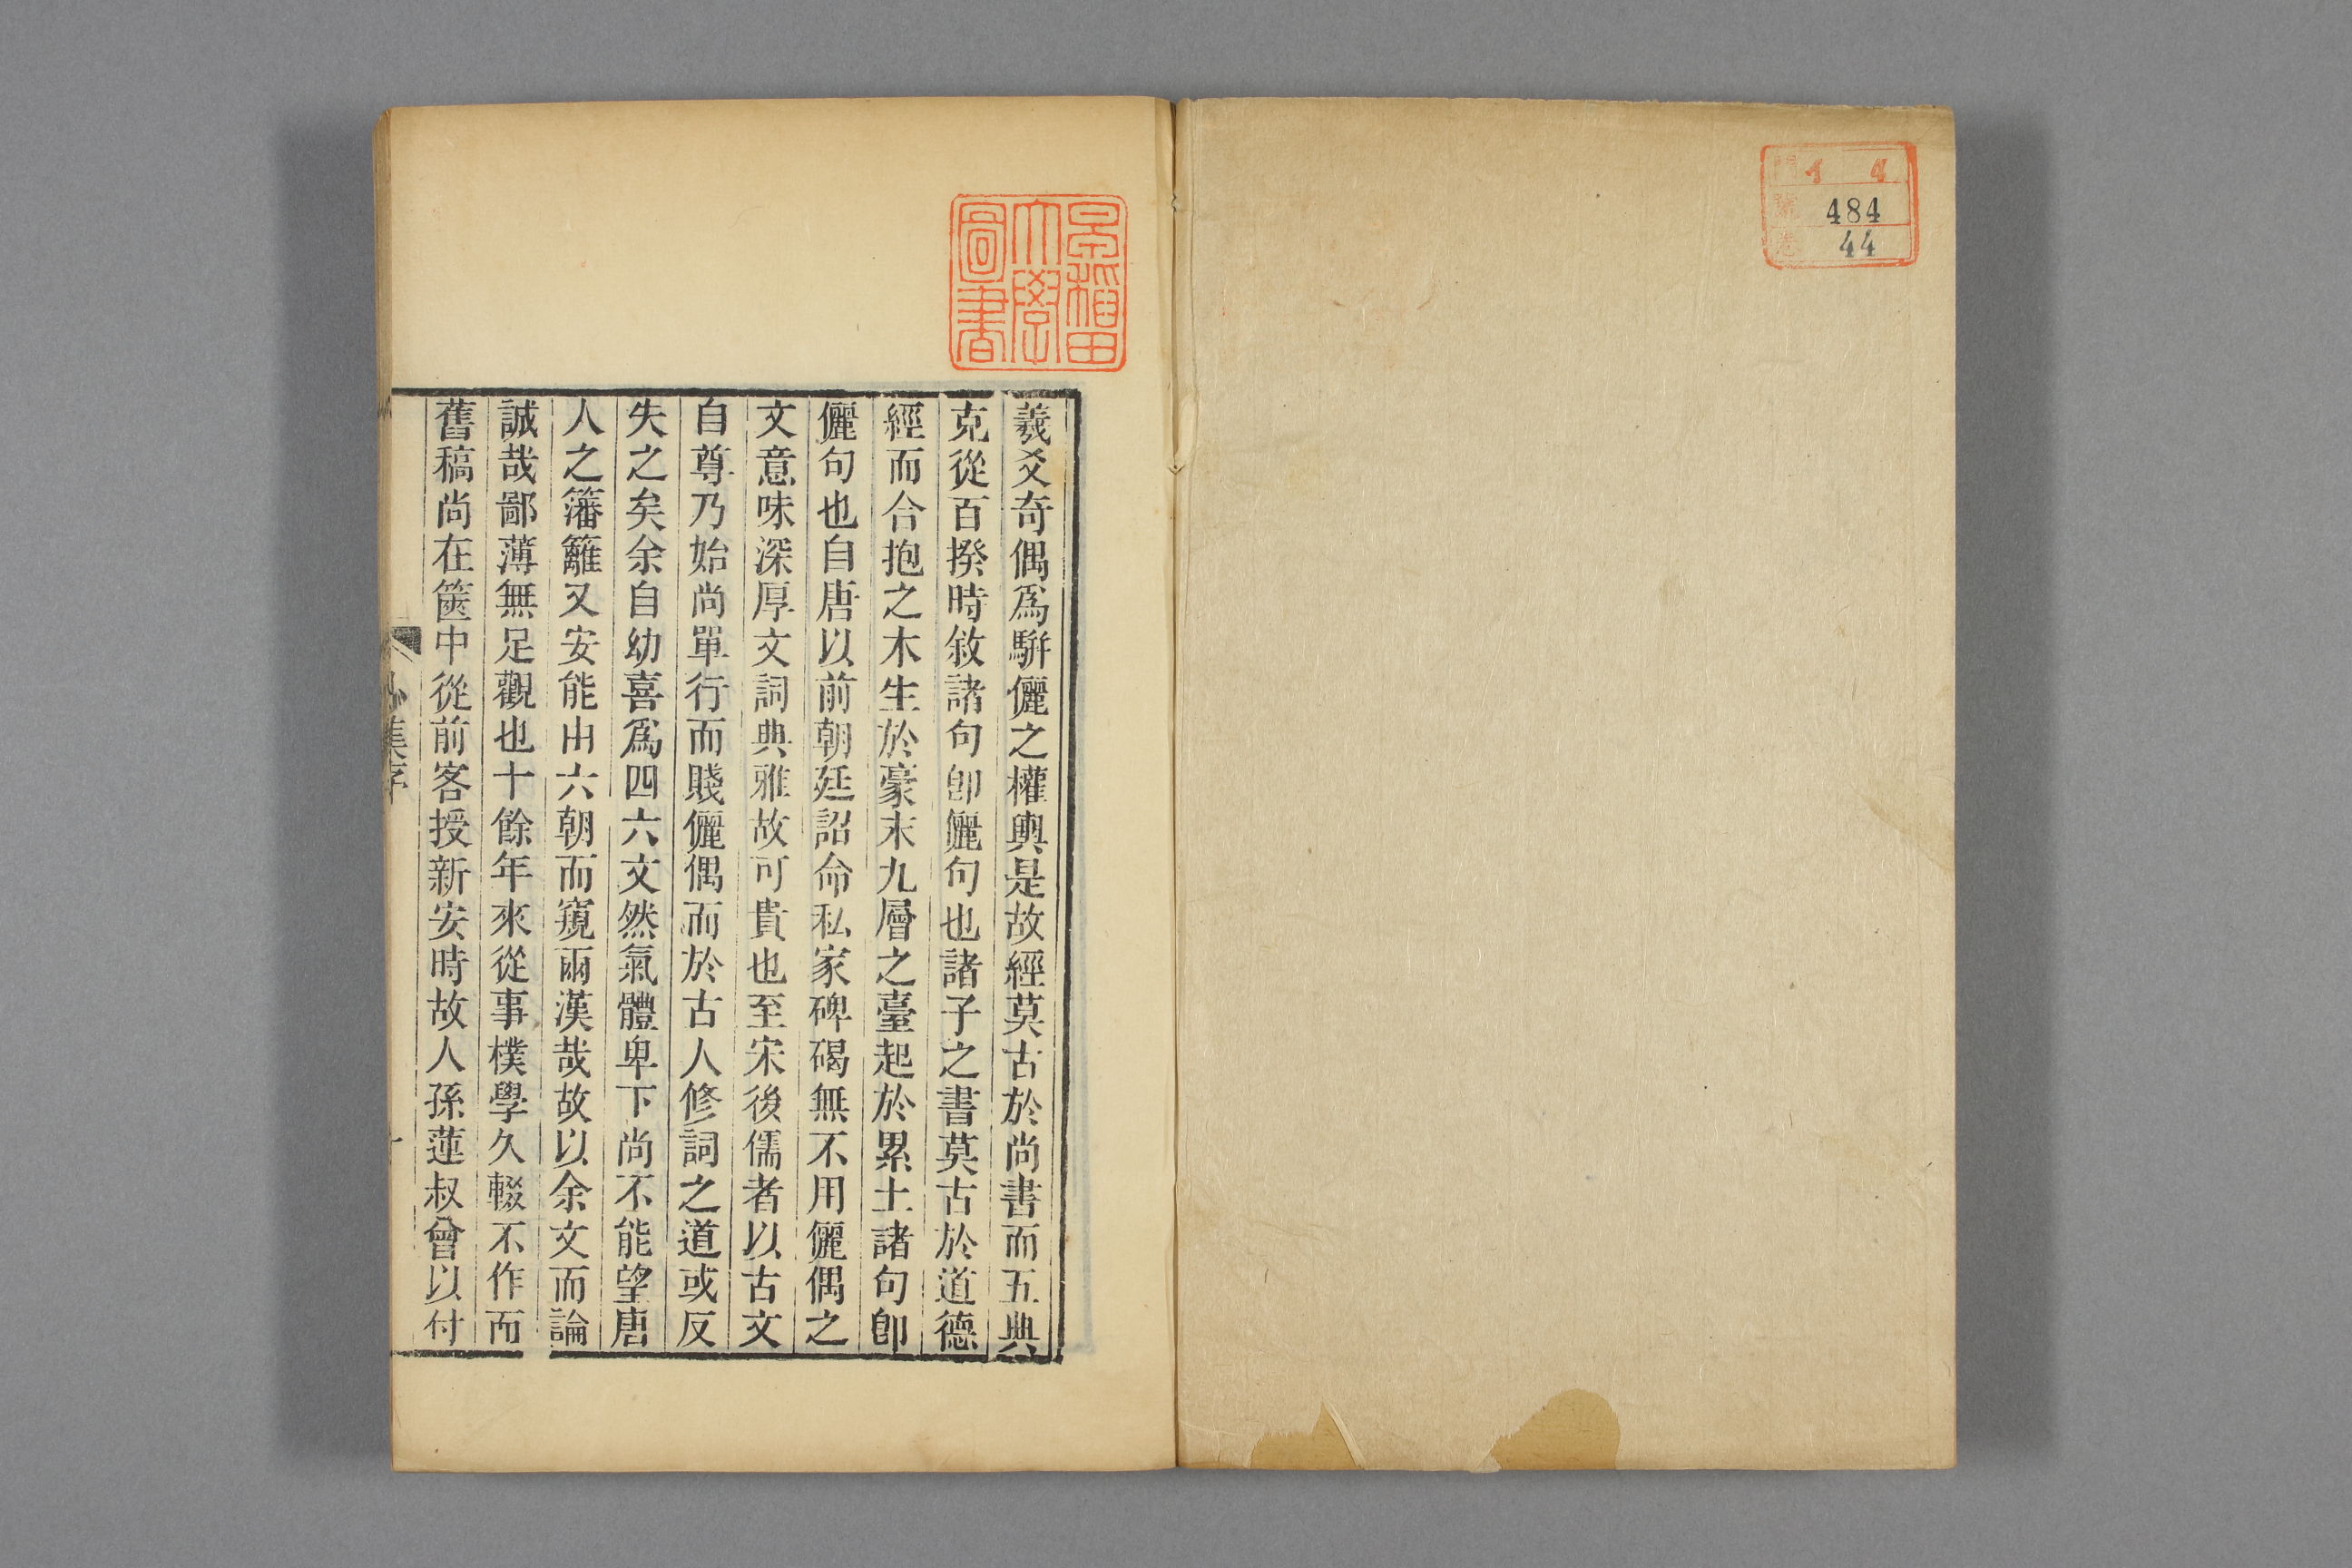 門 イ 4
號 484
卷 44
早稻田
大學
圖書
羲爻奇偶爲駢儷之權輿是故經莫古於尚書而五典
克從百揆時敘諸句卽儷句也諸子之書莫古於道德
經而合抱之木生於豪末九層之臺起於累土諸句卽
儷句也自唐以前朝廷詔命私家碑碣無不用儷偶之
文意味深厚文詞典雅故可貴也至宋後儒者以古文
自尊乃始尚單行而賤儷偶而於古人修詞之道或反
失之矣余自幼喜爲四六文然氣體卑下尚不能望唐
人之籓籬又安能由六朝而窺兩漢哉故以余文而論
誠哉鄙薄無足觀也十餘年來從事樸學久輟不作而
舊稿尚在篋中從前客授新安時故人孫蓮叔曾以付
集序